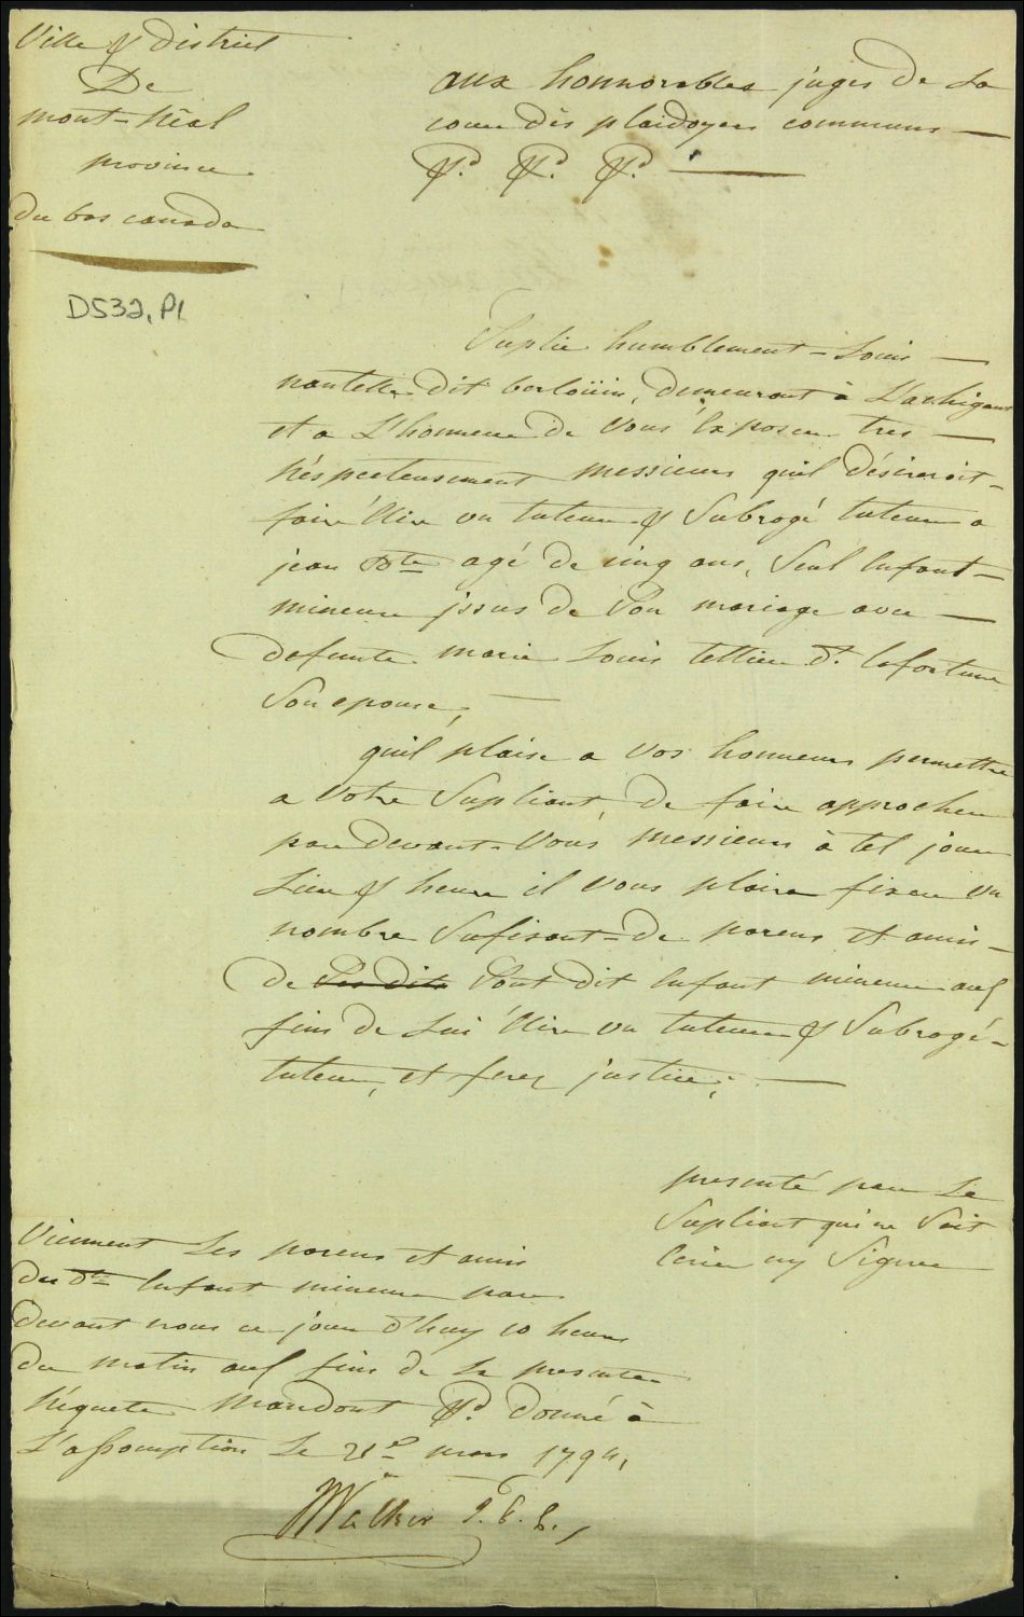 Ville & district
De
mont-Réal
province
du bas canada
D532, P1
aux honnorables juges De La
cour Dès plaidoyers communs —
&c. &c. &c. —
Suplie humblement - Louis —
nantelle Dit berloüin, Demeurant à L'achigant
et a L'honneur De Vous Exposer tres —
Réspecteusement messieurs quil Désireroit -
faire Elire un tuteur & Subrogé tuteur a
jean Bte agé De cinq ans, Seul Enfant -
mineur jssus de Son mariage avec —
Defunte marie Louis tellier dt. lafortune
Son epouse, —
quil plaise a Vos honneurs permettre
a Votre Supliant, De faire approcher
par Devant Vous messieurs à tel jour
Lieu & heure il Vous plaira fixer un
nombre Sufisant De parens et amis -
De Ses Dits Sont Dit Enfant mineur aux
fins De Lui Elire un tuteur & Subrogé -
tuteur, et ferez justice; —
presenté par Le
Supliant qui ne Sait
Ecrire ny Signer
Viennent Les parens et amis
du dt Enfant mineur par
Devant nous ce jour D'huy 10 heures
Du matin aux fins De La presente
Réquete Mandont &c. Donné à
L'assomption Le 21e mars 1794,
JWalker J.C.B.,